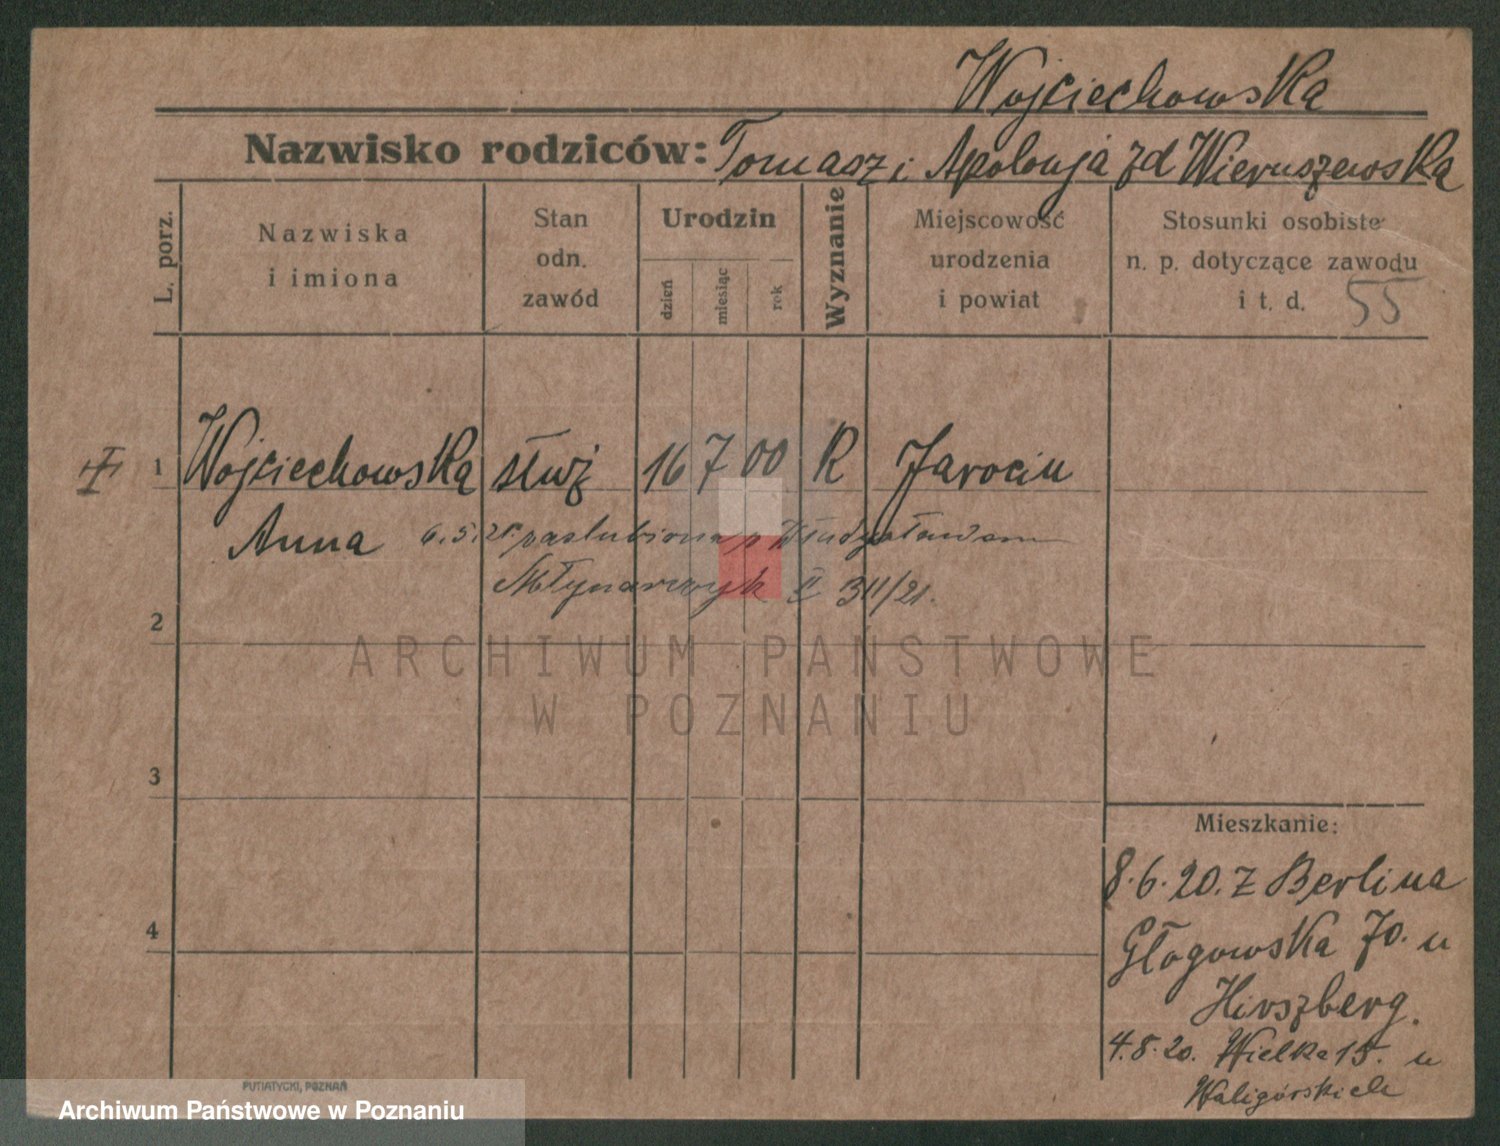 Wojciechowska
Nazwisko rodziców: Tomasz i Apolonja zd Wieruszewska
L. porz.
Nazwiska
i imiona
Stan
odn.
zawód
Urodzin
dzień
miesiąc
rok
Wyznanie
Miejscowość
urodzenia
i powiat
Stosunki osobiste
n. p. dotyczące zawodu
i t. d. 55
1 Wojciechowska służ 16 7 00 R Jarocin
Anna 6.5.21. zaślubiona p Władysławem
Młynarczyk II 311/21.
2
ARCHIWUM PAŃSTWOWE
W POZNANIU
3
Mieszkanie:
8.6.20. z Berlina
4
Głogowska 70. u
Hirszberg.
4.8.20. Wielka 15. u
Waligórskich
PUTIATYCKI, POZNAŃ
Archiwum Państwowe w Poznaniu